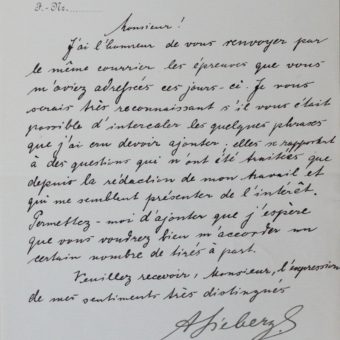 J.-Nr.
Monsieur!
J'ai l'honneur de vous renvoyer par
le même courrier les épreuves que vous
m'aviez adressées ces jours-ci. Je vous
serais très reconnaissant s'il vous était
possible d'intercaler les quelques phrases
que j'ai cru devoir ajouter, elles se rapportent
à des questions qui n'ont été traitées que
depuis la rédaction de mon travail et
qui me semblent présenter de l'intérêt.
Permettez-moi d'ajouter que j'espère
que vous voudrez bien m'accorder un
certain nombre de tirés à part.
Veuillez recevoir, Monsieur, l'expression
de mes sentiments très distingués